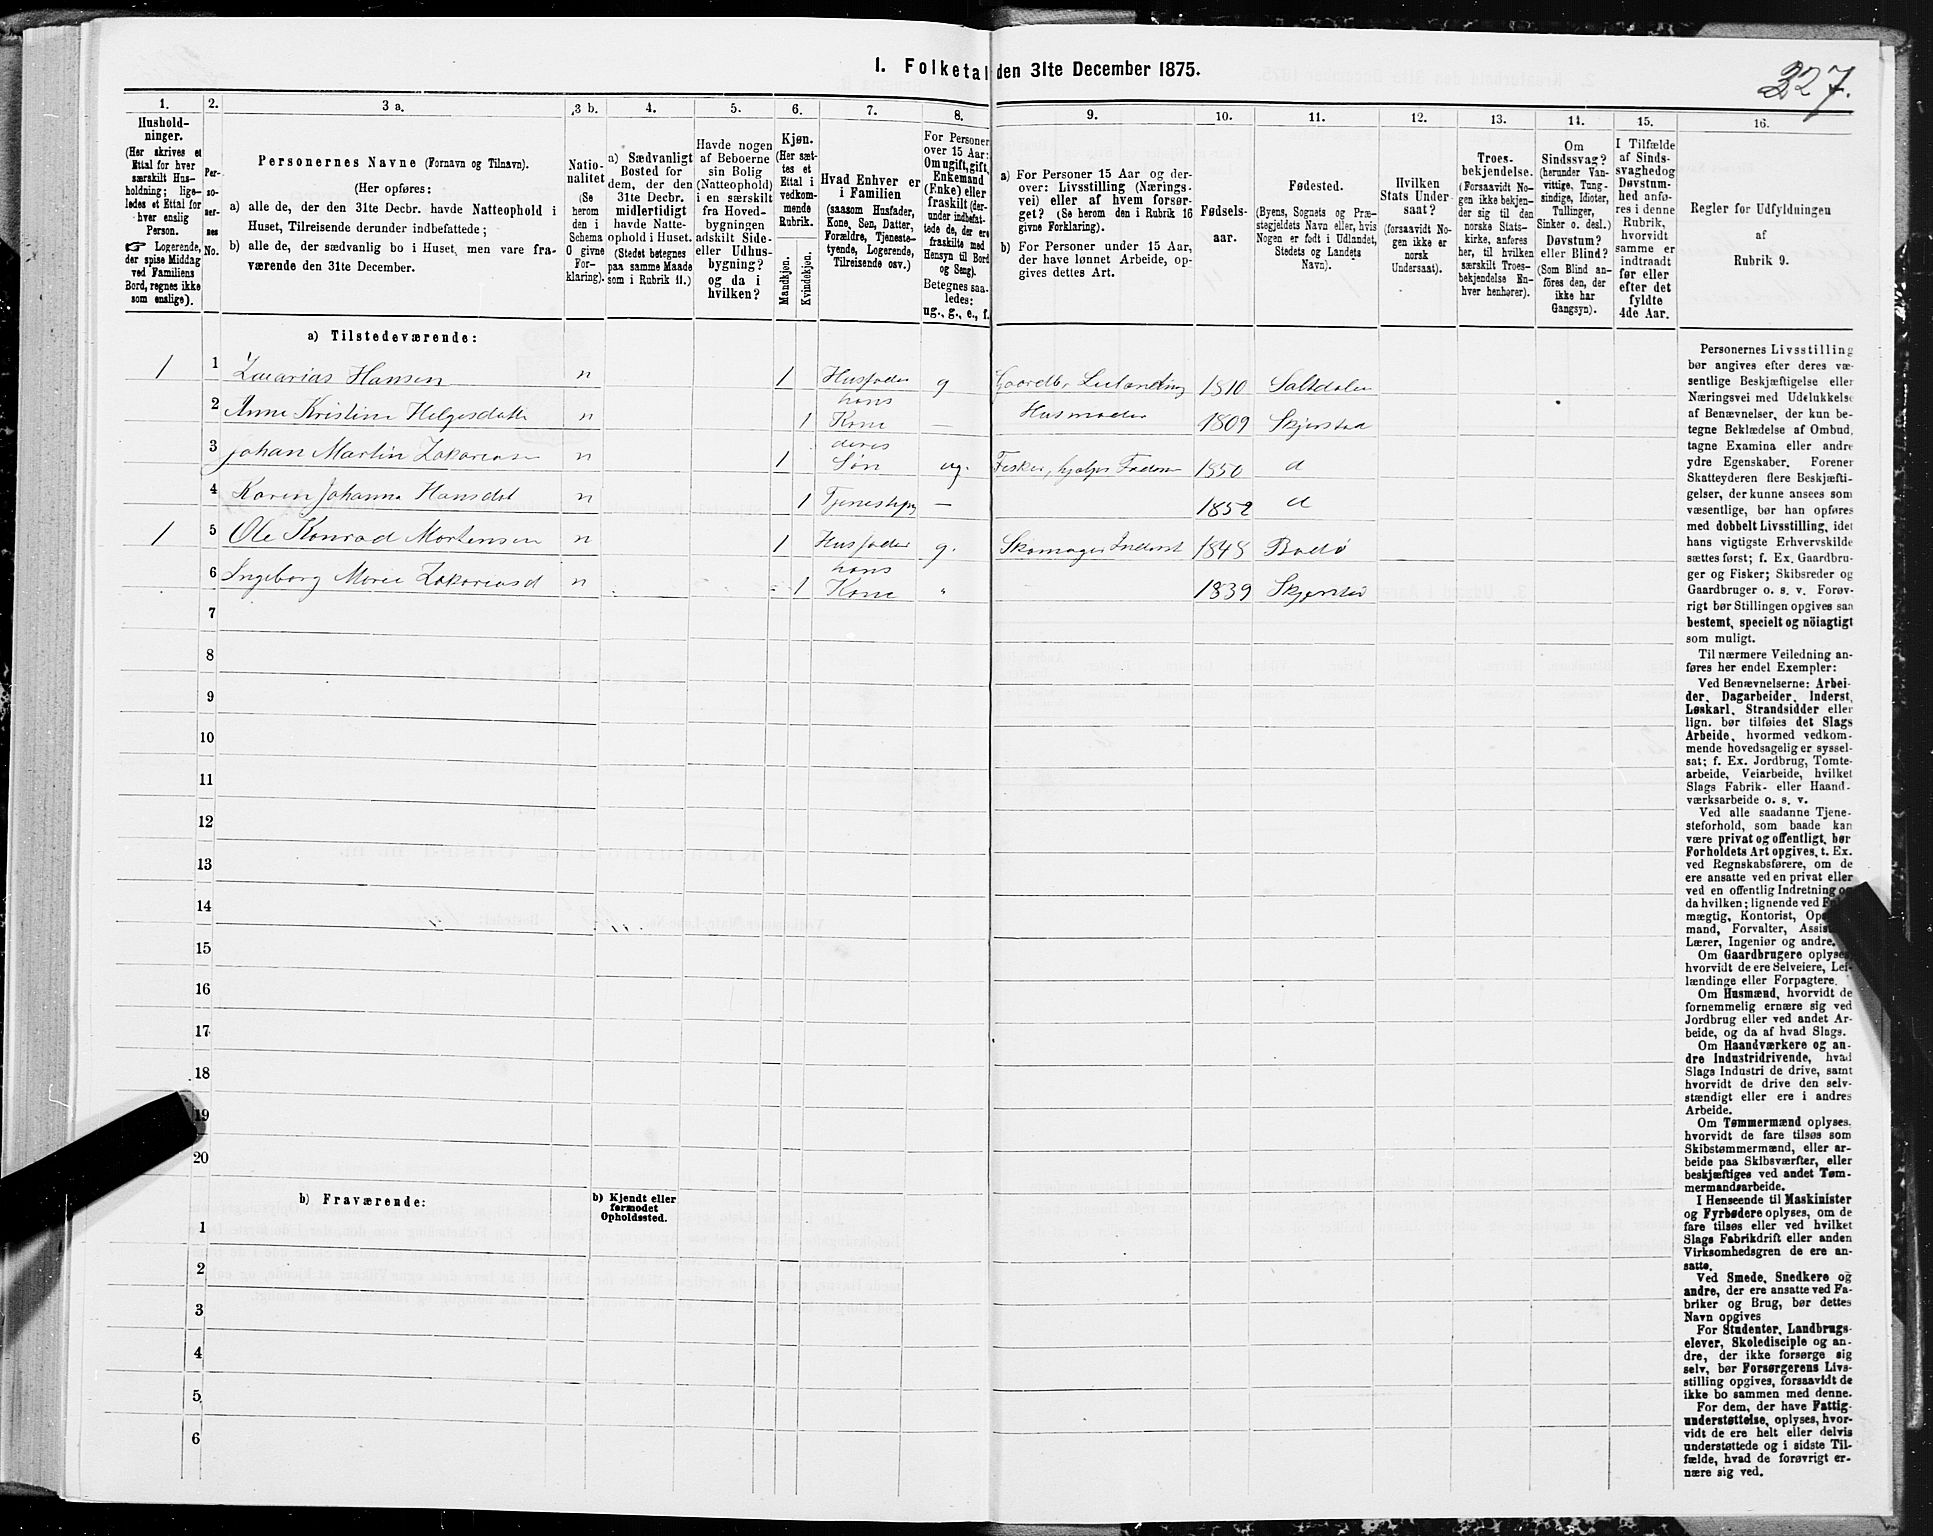 I. Folketal den 31te December 1875.
327.
1.
Hushold-
ninger.
(Her skrives et
Ettal for hver
særskilt Hus-
holdning; lige-
ledes et Ettal for
hver enslig
Person.
☞ Logerende,
der spise Middag
ved Familiens
Bord, regnes ikke
som enslige).
2.
Per-
so-
ner-
nes
No.
3 a.
Personernes Navne (Fornavn og Tilnavn).
(Her opføres:
a) alle de, der den 31te Decbr. havde Natteophold i
Huset, Tilreisende derunder indbefattede;
b) alle de, der sædvanlig bo i Huset, men vare fra-
værende den 31te December.
3 b.
Natio-
nalitet
(Se
herom
den i
Schema
O givne
For-
klaring).
4.
a) Sædvanligt
Bosted for
dem, der den
31te Decbr.
midlertidigt
havde Natte-
ophold i Huset.
(Stedet betegnes
paa samme Maade
som i Rubrik 11.)
5.
Havde nogen
af Beboerne
sin Bolig
(Natteophold)
i en særskilt
fra Hoved-
bygningen
adskilt Side-
eller Udhus-
bygning?
og da i
hvilken?
6.
Kjøn.
(Her sæt-
tes et
Ettal i
vedkom-
mende
Rubrik.
Mandkjøn.
Kvindekjøn.
7.
Hvad Enhver er
i Familien
(saasom Husfader,
Kone, Søn, Datter,
Forældre, Tjeneste-
tyende, Logerende,
Tilreisende osv.)
8.
For Personer
over 15 Aar:
Om ugift, gift,
Enkemand
(Enke) eller
fraskilt (der-
under indbefat-
tede de, der ere
fraskilte med
Hensyn til Bord
og Seng).
Betegnes saa-
ledes:
ug., g., e., f.
9.
a) For Personer 15 Aar og der-
over: Livsstilling (Nærings-
vei) eller af hvem forsør-
get? (Se herom den i Rubrik 16
givne Forklaring).
b) For Personer under 15 Aar,
der have lønnet Arbeide, op-
gives dettes Art.
10.
Fødsels-
aar.
11.
Fødested.
(Byens, Sognets og Præ-
stegjeldets Navn eller, hvis
Nogen er født i Udlandet,
Stedets og Landets
Navn).
12.
Hvilken
Stats Under
saat?
(forsaavidt No-
gen ikke er
norsk
Undersaat).
13.
Troes-
bekjendelse.
(Forsaavidt No-
gen ikke bekjen-
der sig til den
norske Stats-
kirke, anføres
her, til hvilken
særskilt Troes-
bekjendelse En-
hver henhører).
14.
Om
Sindssvag?
(herunder Van-
vittige, Tung-
sindige, Idioter,
Tullinger,
Sinker o. desl.)
Døvstum?
eller Blind?
(Som Blind an-
føres den, der
ikke har
Gangsyn).
15.
I Tilfælde
af Sinds-
svaghed og
Døvstum-
hed anfø-
res i denne
Rubrik,
hvorvidt
samme er
indtraadt
før eller
efter det
fyldte
4de Aar.
16.
Regler for Udfyldningen
af
Rubrik 9.
a) Tilstedeværende:
1 1 Zacarias Hansen n 1 Husfader g Gaardbr. Leilænding 1810 Saltdalen
2 Anne Kristine Helgesdatt n 1 hans Kone — Husmoder 1809 Skjerstad
3 Johan Martin Zakariasn n 1 deres Søn ug. Fisker, hjelper Faderen 1850 d
4 Karen Johanna Hansdat n 1 Tjenestepg — 1852 d
1 5 Ole Konrad Mortensen n 1 Husfader g. Skomager Inderst 1848 Bodø
6 Ingeborg Marie Zakariasd n 1 hans Kone " 1839 Skjerstad
7
8
9
10
11
12
13
14
15
16
17
18
19
20
b) Fraværende:
b) Kjendt eller
formodet
Opholdssted.
1
2
3
4
5
6
Personernes Livsstilling
bør angives efter deres væ-
sentlige Beskjæftigelse eller
Næringsvei med Udelukkelse
af Benævnelser, der kun be-
tegne Beklædelse af Ombud,
tagne Examina eller andre
ydre Egenskaber. Forener
Skatteyderen flere Beskjæfti-
gelser, der kunne ansees som
væsentlige, bør han opføres
med dobbelt Livsstilling, idet
hans vigtigste Erhvervskilde
sættes først; f. Ex. Gaardbru-
ger og Fisker; Skibsreder og
Gaardbruger o. s. v. Forøv-
rigt bør Stillingen opgives saa
bestemt, specielt og nöiagtigt
som muligt.
Til nærmere Veiledning an-
føres her endel Exempler:
Ved Benævnelserne: Arbei-
der, Dagarbeider, Inderst,
Løskarl, Strandsidder eller
lign. bør tilføies det Slags
Arbeide, hvormed vedkom-
mende hovedsagelig er syssel-
sat; f. Ex. Jordbrug, Tomte-
arbeide, Veiarbeide, hvilket
Slags Fabrik- eller Haand-
værksarbeide o. s. v.
Ved alle saadanne Tjene-
steforhold, som baade kan
være privat og offentligt, bør
Forholdets Art opgives, t. Ex.
ved Regnskabsførere, om de
ere ansatte ved en privat eller
ved en offentlig Indretning og
da hvilken; lignende ved
mægtig, Kontorist,
mand, Forvalter,
Lærer, Ingeniør og andre.
Om Gaardbrugere oplyses,
hvorvidt de ere Selveiere, Lei-
lændinge eller Forpagtere.
Om Husmænd, hvorvidt de
fornemmelig ernære sig ved
Jordbrug eller ved andet Ar-
beide, og da af hvad Slags.
Om Haandværkere og an-
dre Industridrivende, hvad
Slags Industri de drive, samt
hvorvidt de drive den selv-
stændigt eller ere i andres
Arbeide.
Om Tømmermænd oplyses,
hvorvidt de fare tilsøs som
Skibstømmermænd, eller ar-
beide paa Skibsværfter, eller
beskjæftiges ved andet Tøm-
mermandsarbeide.
I Henseende til Maskinister
og Fyrbødere oplyses, om de
fare tilsøs eller ved hvilket
Slags Fabrikdrift eller anden
Virksomhedsgren de ere an-
satte.
Ved Smede, Snedkere og
andre, der ere ansatte ved Fa-
briker og Brug, bør dettes
Navn opgives
For Studenter, Landbrugs-
elever, Skoledisciple og an-
dre, der ikke forsørge sig
selv, bør Forsørgerens Livs-
stilling opgives, forsaavidt de
ikke bo sammen med denne.
For dem, der have Fattig-
understøttelse, oplyses, hvor-
vidt de ere helt eller delvis
understøttede og i sidste Til-
fælde, hvad de forøvrigt er-
nære sig ved.